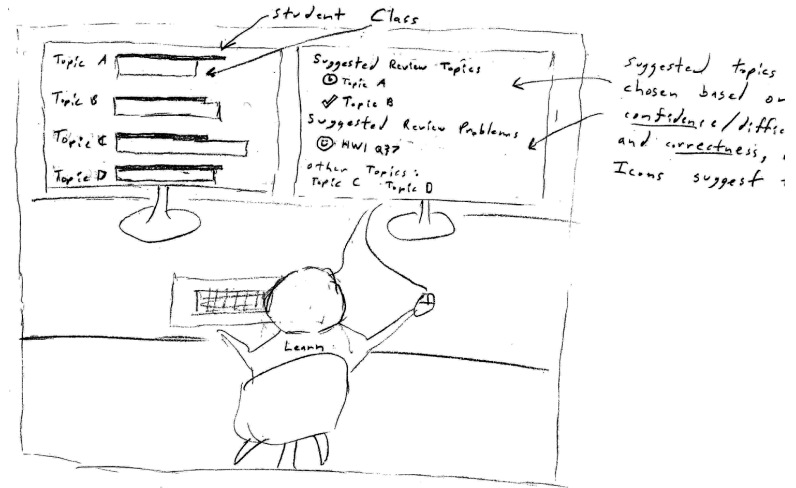 student Class
Topic A
Topic B
Topic C
Topic D
Suggested Review Topics
Topic A
✓ Topic B
Suggested Review Problems
HW1 Q37
other Topics:
Topic C Topic D
Suggested topics
chosen based on
confidence/diffic
and correctness,
Icons suggest
Learn